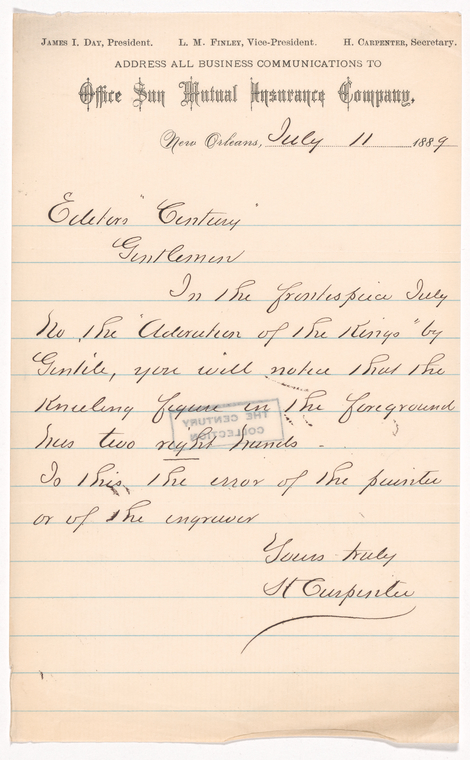 JAMES I. DAY, President. L. M. FINLEY, Vice-President. H. CARPENTER, Secretary.
ADDRESS ALL BUSINESS COMMUNICATIONS TO
Office Sun Mutual Insurance Company.
New Orleans, July 11 1889
Editors "Century"
Gentlemen
In the frontispiece July
No, the "Adoration of the Kings" by
Gentile, you will notice that the
Kneeling figure in the foreground
has two right hands -
Is this the error of the painter
or of the engraver
Yours truly
H Carpenter
THE CENTURY
COLLECTION